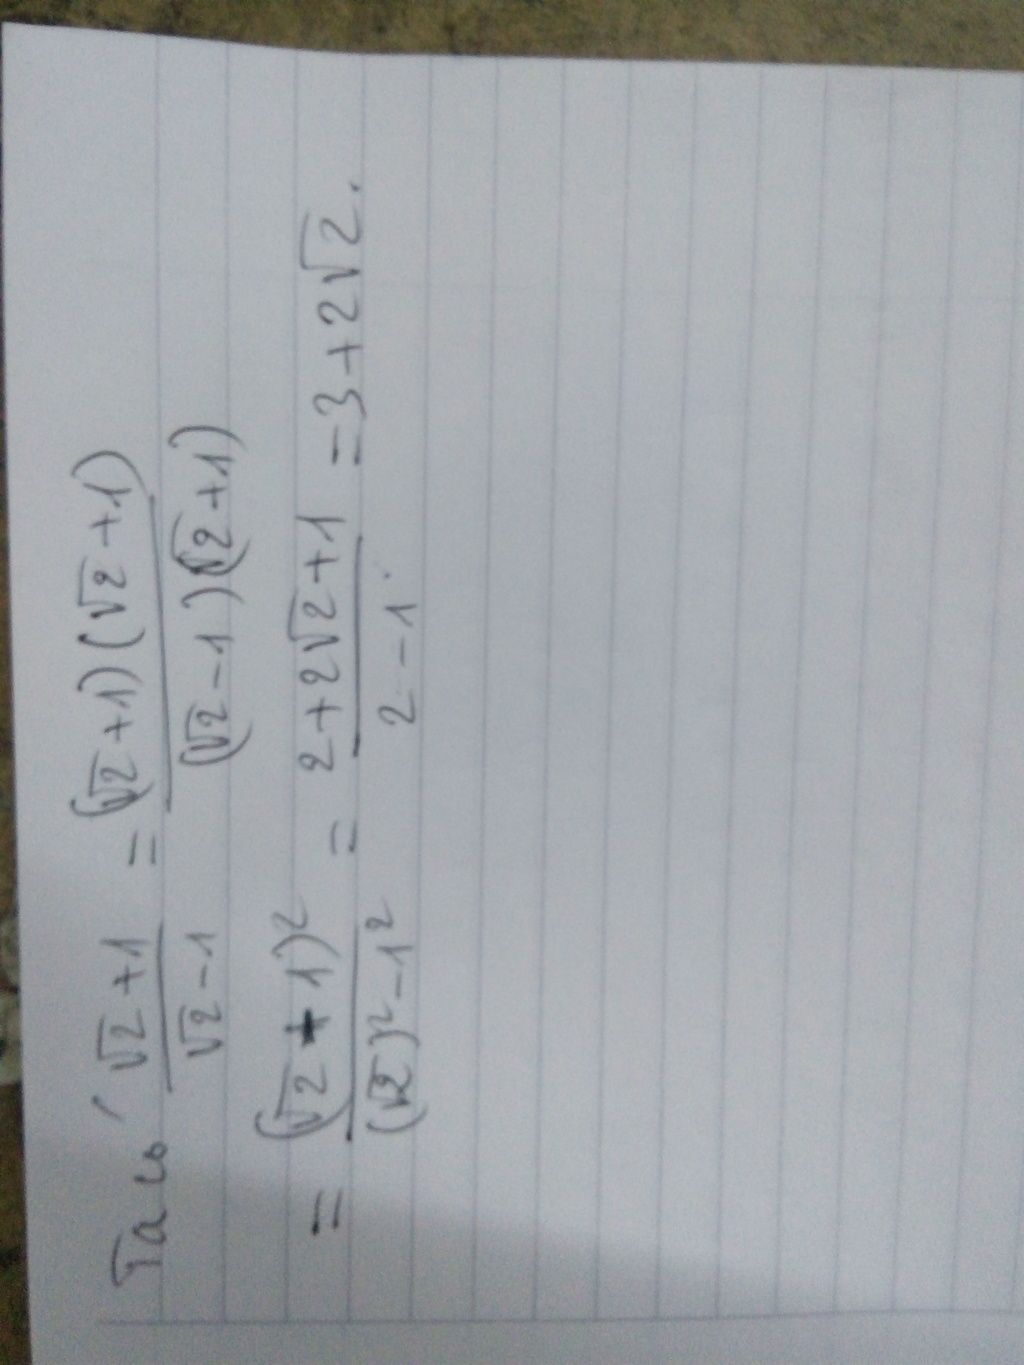 Ta có √2+1 / √2-1 = (√2+1)(√2+1) / (√2-1)(√2+1)
= (√2+1)² / (√2)²-1² = 2+2√2+1 / 2-1 = 3+2√2.